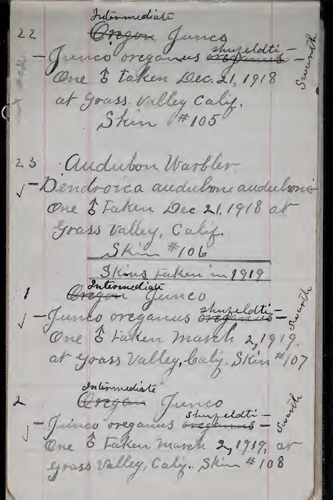 Intermediate
22 Oregon Junco
— Junco oreganus shufeldti — oreganus — Swarth
One ♂ taken Dec. 21, 1918
at Grass Valley Calif.
Skin #105
23 Audubon Warbler.
✓ — Dendroica auduboni auduboni
One ♂ taken Dec 21, 1918 at
Grass Valley, Calif.
Skin #106
Skins taken in 1919
Intermediate
1 Oregon Junco
✓ — Junco oreganus shufeldti — oreganus — Swarth
One ♂ taken March 2, 1919.
at Grass Valley, Calif. Skin #107
Intermediate
2 Oregon Junco
✓ — Junco oreganus shufeldti — oreganus — Swarth
One ♂ taken March 2, 1919, at
Grass Valley, Calif. Skin #108